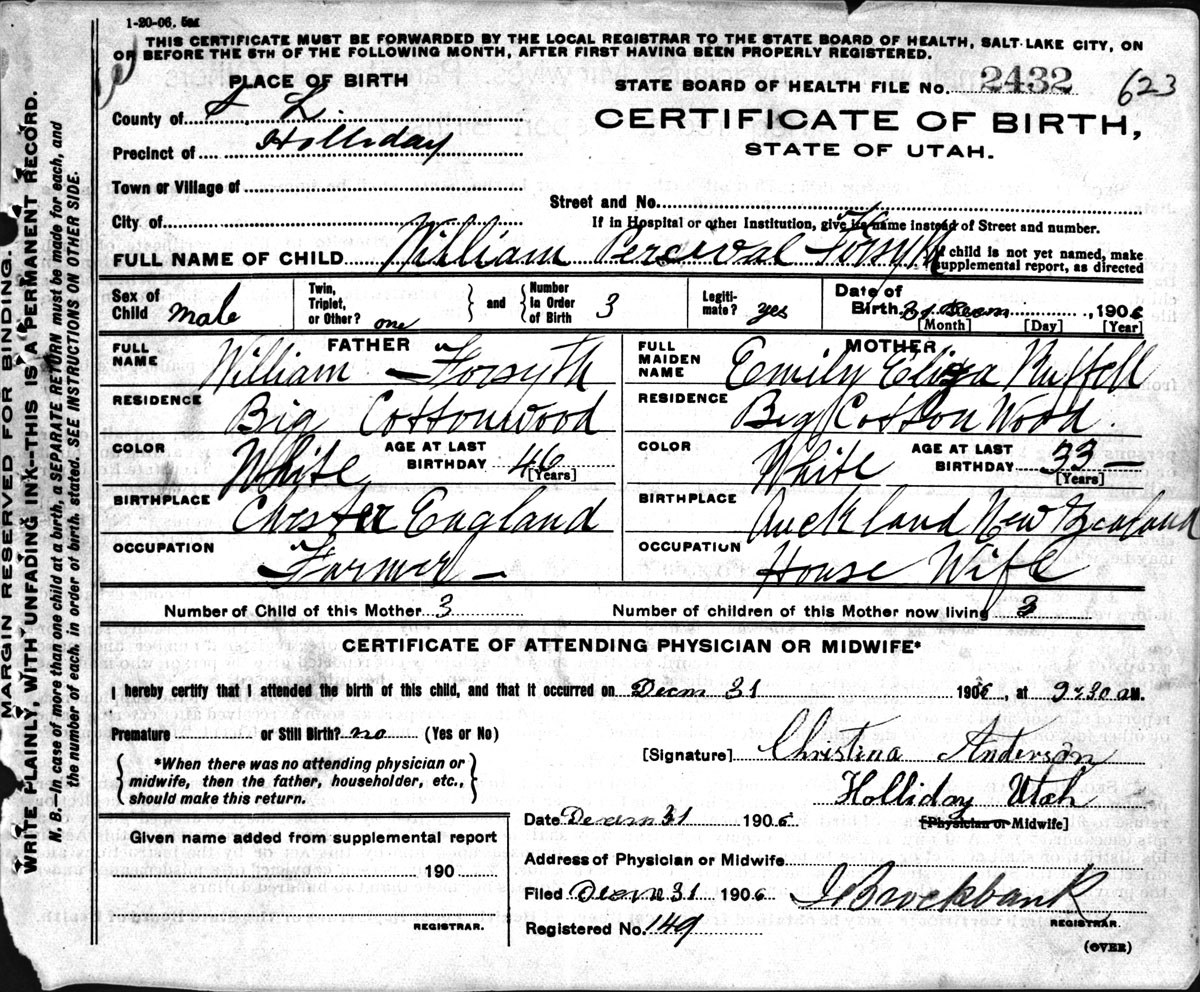 1-20-06. 5M
THIS CERTIFICATE MUST BE FORWARDED BY THE LOCAL REGISTRAR TO THE STATE BOARD OF HEALTH, SALT LAKE CITY, ON
OR BEFORE THE 5TH OF THE FOLLOWING MONTH, AFTER FIRST HAVING BEEN PROPERLY REGISTERED.
PLACE OF BIRTH
STATE BOARD OF HEALTH FILE No. 2432
623
County of S. L.
CERTIFICATE OF BIRTH,
Precinct of Holliday
STATE OF UTAH.
Town or Village of
Street and No.
City of
If in Hospital or other Institution, give its name instead of Street and number.
FULL NAME OF CHILD William Percival Forsyth
If child is not yet named, make
supplemental report, as directed
Sex of Child Male
Twin, Triplet, or Other? one
and
Number in Order of Birth 3
Legitimate? yes
Date of Birth 31 Decm, 1906
[Month] [Day] [Year]
FATHER
FULL NAME William Forsyth
RESIDENCE Big Cottonwood
COLOR White AGE AT LAST BIRTHDAY 46 [Years]
BIRTHPLACE Chester England
OCCUPATION Farmer
MOTHER
FULL MAIDEN NAME Emily Eliza Ruffell
RESIDENCE Big Cotton Wood.
COLOR White AGE AT LAST BIRTHDAY 33 [Years]
BIRTHPLACE Auckland New Zealand
OCCUPATION House Wife
Number of Child of this Mother 3
Number of children of this Mother now living 3
CERTIFICATE OF ATTENDING PHYSICIAN OR MIDWIFE*
I hereby certify that I attended the birth of this child, and that it occurred on Decm 31 1906, at 9-30 a M.
Premature or Still Birth? no (Yes or No)
[Signature] Christina Anderson
*When there was no attending physician or
midwife, then the father, householder, etc.,
should make this return.
Holliday Utah
Date Decm 31 1906
[Physician or Midwife]
Given name added from supplemental report
190
REGISTRAR.
Address of Physician or Midwife
Filed Decm 31 1906 J Brockbank
REGISTRAR.
Registered No. 149
(OVER)
MARGIN RESERVED FOR BINDING.
WRITE PLAINLY, WITH UNFADING INK--THIS IS A PERMANENT RECORD.
N. B.--In case of more than one child at a birth, a SEPARATE RETURN must be made for each, and
the number of each, in order of birth, stated. SEE INSTRUCTIONS ON OTHER SIDE.